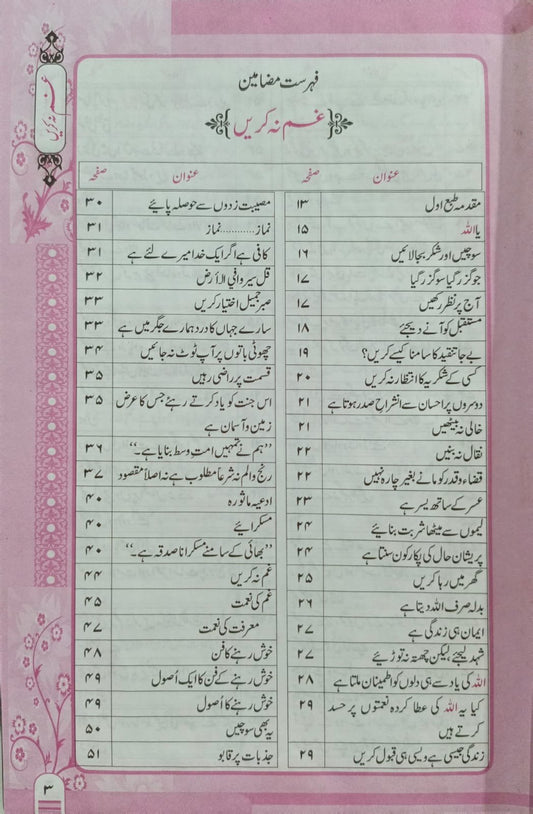 غم نہ کریں
فہرست مضامین
غم نہ کریں
عنوان صفحہ
مقدمہ طبع اول ۱۳
یا اللہ ۱۵
سوچیں اور شکر بجا لائیں ۱۶
جو گزر گیا سو گزر گیا ۱۷
آج پر نظر رکھیں ۱۷
مستقبل کو آنے دیجئے ۱۸
بے جا تنقید کا سامنا کیسے کریں؟ ۱۹
کسی کے شکریہ کا انتظار نہ کریں ۲۰
دوسروں پر احسان سے انشراح صدر ہوتا ہے ۲۱
خالی نہ بیٹھیں ۲۱
نقال نہ بنیں ۲۲
قضاء و قدر کو مانے بغیر چارہ نہیں ۲۲
عسر کے ساتھ یسر ہے ۲۳
لیموں سے میٹھا شربت بنائیے ۲۴
پریشان حال کی پکار کون سنتا ہے ۲۴
گھر میں رہا کریں ۲۵
بدلہ صرف اللہ دیتا ہے ۲۶
ایمان ہی زندگی ہے ۲۷
شہد لیجئے، لیکن چھتہ نہ توڑیئے ۲۷
اللہ کی یاد سے ہی دلوں کو اطمینان ملتا ہے ۲۸
کیا یہ اللہ کی عطا کردہ نعمتوں پر حسد ۲۹
کرتے ہیں
زندگی جیسی ہے ویسی ہی قبول کریں ۲۹
عنوان صفحہ
مصیبت زدوں سے حوصلہ پائیے ۳۰
نماز.........نماز ۳۱
کافی ہے اگر ایک خدا میرے لئے ہے ۳۱
قل سیروا فی الارض ۳۲
صبر جمیل اختیار کریں ۳۳
سارے جہاں کا درد ہمارے جگر میں ہے ۳۳
چھوٹی باتوں پر آپ ٹوٹ نہ جائیں ۳۴
قسمت پر راضی رہیں ۳۵
اس جنت کو یاد کرتے رہئے جس کا عرض ۳۵
زمین و آسمان ہے
”ہم نے تمہیں امت وسط بنایا ہے۔“ ۳۶
رنج و الم نہ شرعاً مطلوب ہے نہ اصلاً مقصود ۳۷
ادعیہ ماثورہ ۴۰
مسکرائیے ۴۰
”بھائی کے سامنے مسکرانا صدقہ ہے۔“ ۴۰
غم نہ کریں ۴۴
غم کی نعمت ۴۵
معرفت کی نعمت ۴۷
خوش رہنے کا فن ۴۸
خوش رہنے کے فن کا ایک اُصول ۴۹
خوش رہنے کا اُصول ۴۹
یہ بھی سوچیں ۵۰
جذبات پر قابو ۵۱
۳